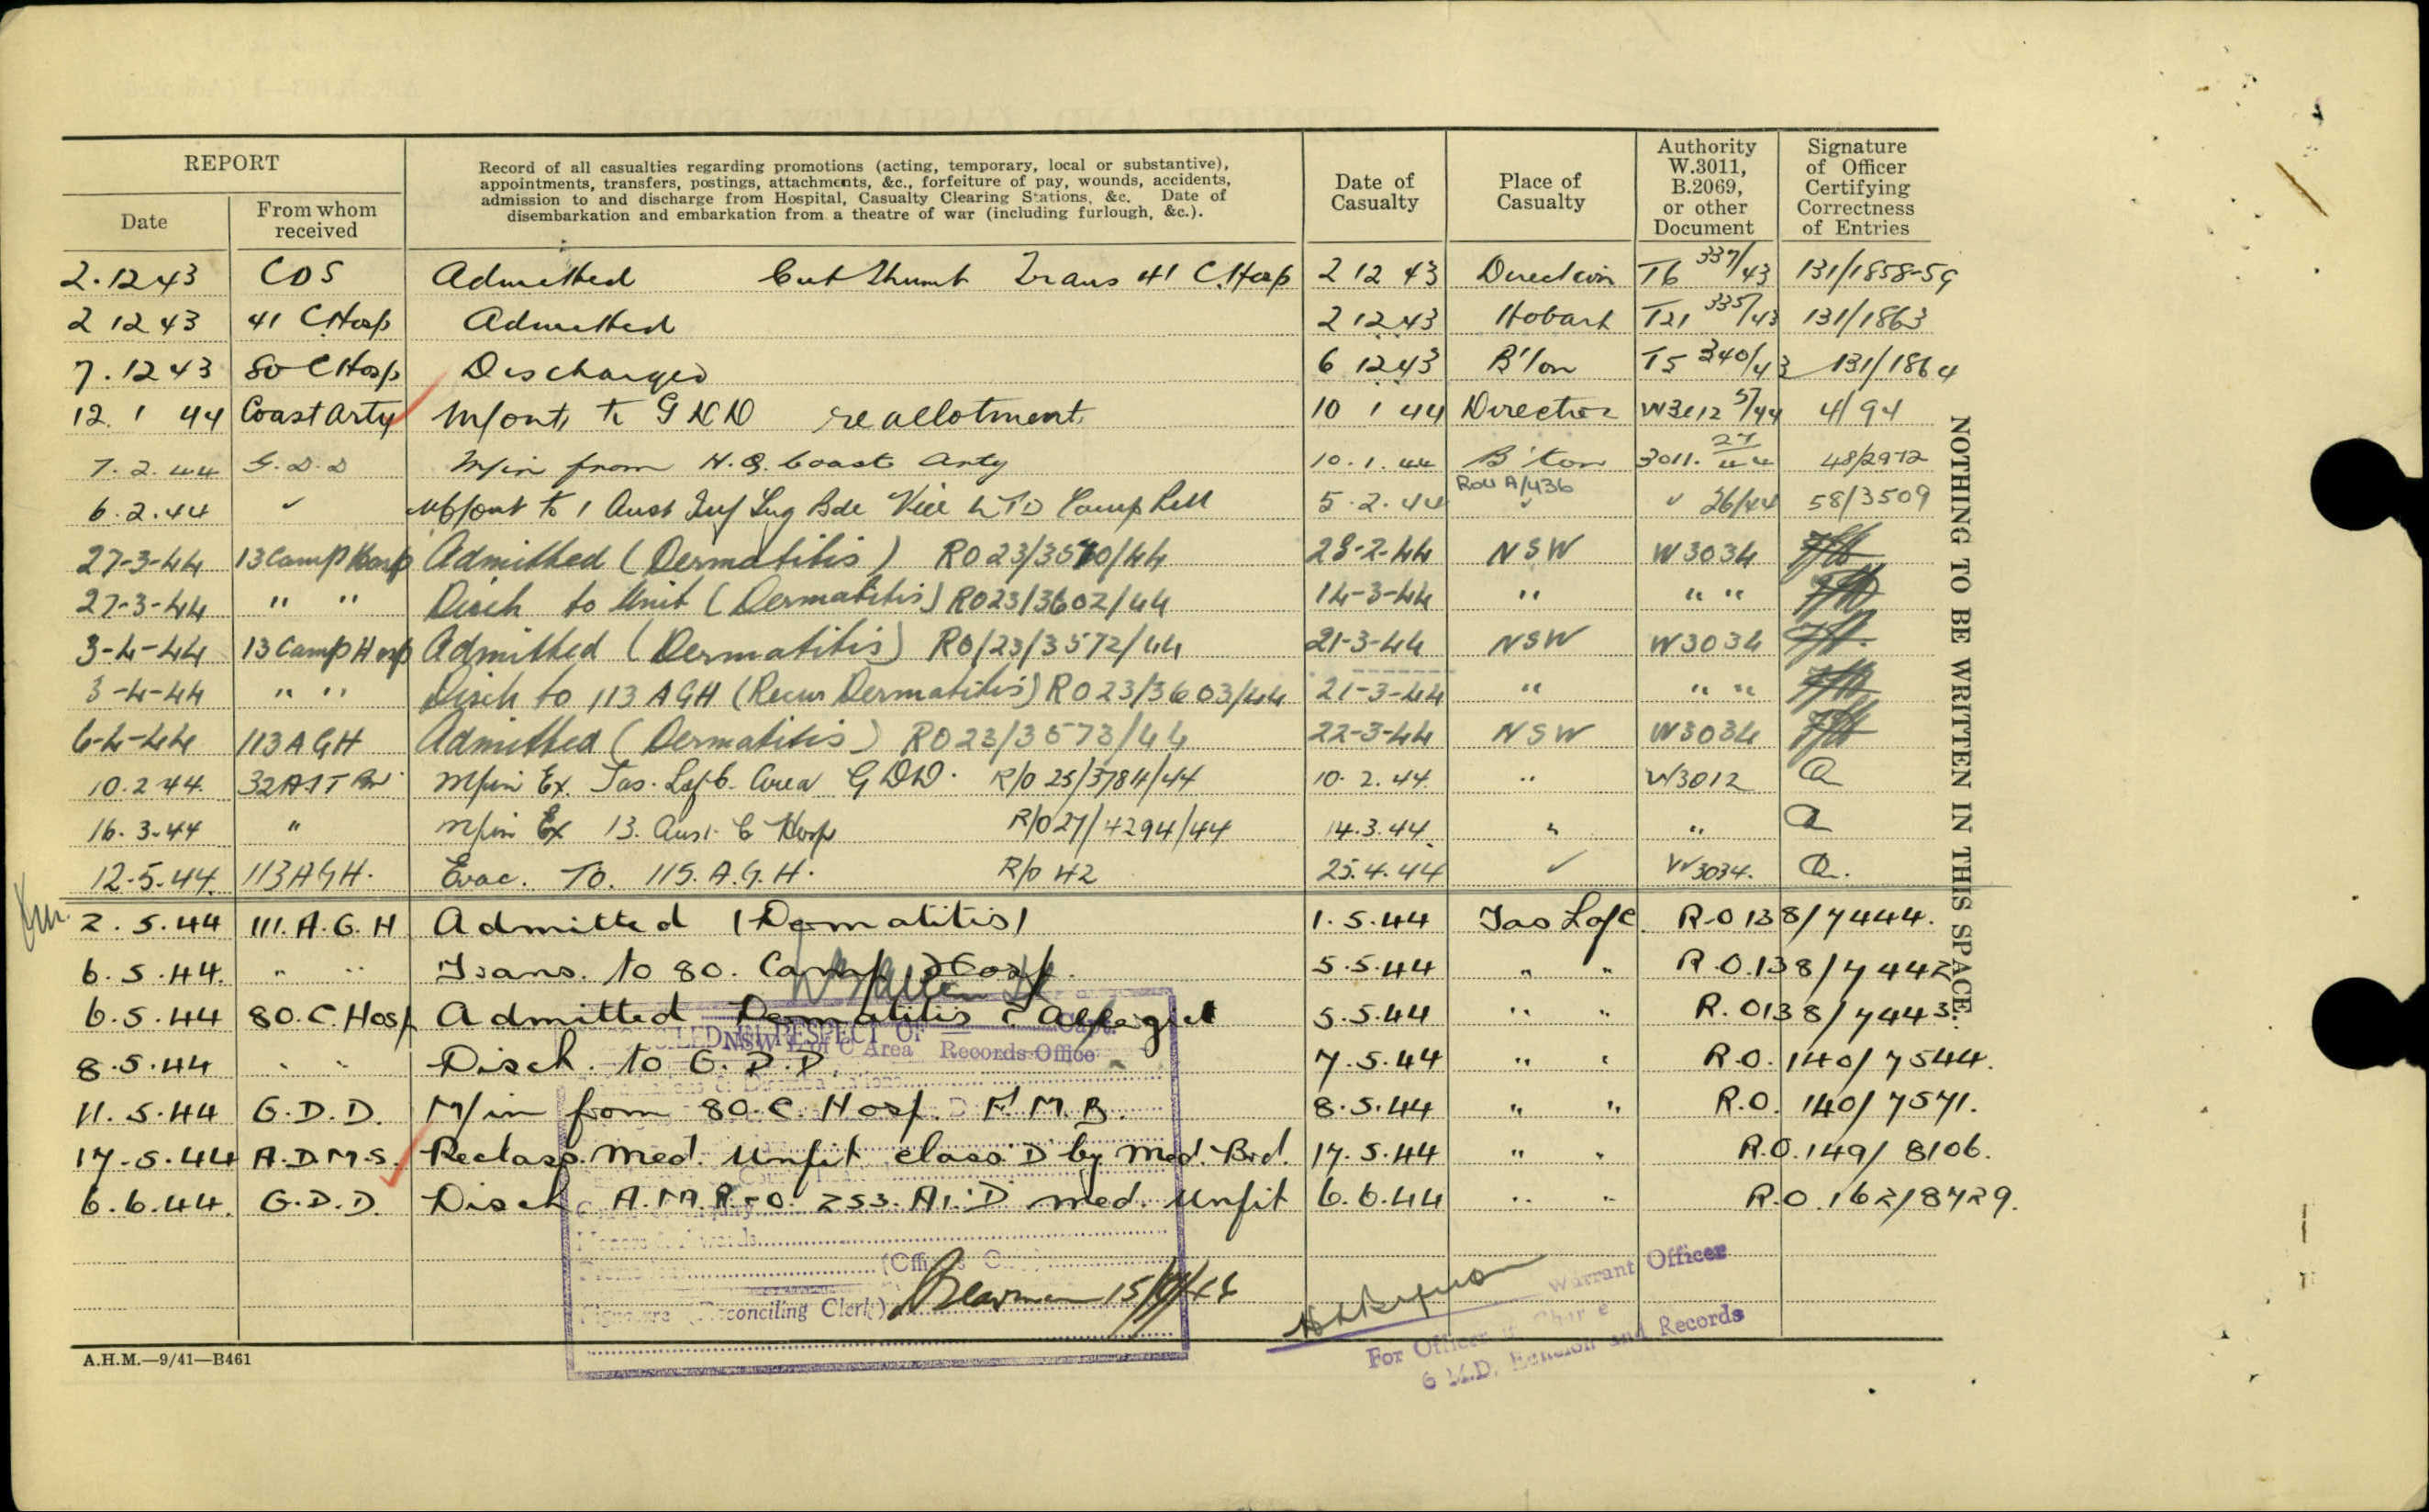 REPORT
Date
From whom
received
Record of all casualties regarding promotions (acting, temporary, local or substantive),
appointments, transfers, postings, attachments, &c., forfeiture of pay, wounds, accidents,
admission to and discharge from Hospital, Casualty Clearing Stations, &c. Date of
disembarkation and embarkation from a theatre of war (including furlough, &c.).
Date of
Casualty
Place of
Casualty
Authority
W.3011,
B.2069,
or other
Document
Signature
of Officer
Certifying
Correctness
of Entries
2.12 43 CDS Admitted Cut Thumb Trans 41 C.Hosp 2 12 43 Direction T6 337/43 131/1858-59
2 12 43 41 C Hosp Admitted 2 12 43 Hobart T21 335/43 131/1863
7.12 43 80 C Hosp Discharged 6 12 43 B'ton T5 340/43 131/1864
12. 1 44 Coast Arty M/out to GDD reallotment. 10 1 44 Direction W3012 5/44 4/94
7.2.44 G.D.D M/in from H.Q. Coast Arty 10.1.44 B'ton 3011. 27/44 48/2972
Roll A/436
6.2.44 M/out to 1 Aust Inf Trg Bde Vice LTD Camp Pell 5.2.44 26/44 58/3509
27-3-44 13 Camp Hosp Admitted (Dermatitis) RO 23/3570/44 28-2-44 NSW W3034
27-3-44 " " Disch to Unit (Dermatitis) RO23/3602/44 14-3-44 " " "
3-4-44 13 Camp Hosp Admitted (Dermatitis) RO/23/3572/44 21-3-44 NSW W3034
3-4-44 " " Disch to 113 AGH (Recur Dermatitis) RO 23/3603/44 21-3-44 " " "
6-4-44 113 AGH Admitted (Dermatitis) RO 23/3573/44 22-3-44 NSW W3034
10.2 44. 32 A I T Bn M/in Ex. Tas. L of C. Area G D D. R/O 25/3784/44 10.2.44. " W3012 a
16.3.44 " M/in Ex 13. Aust. C Hosp R/O 27/4294/44 14.3.44. " " a
12.5.44. 113 AGH. Evac. To. 115. A.G.H. R/O 42 25.4.44 W3034. a.
2.5.44 111. A.G.H Admitted (Dermatitis) 1.5.44 Tas L of C. R.O 138/7444.
6.5.44. " " Trans. to 80. Camp Hosp. 5.5.44 " " R.O.138/7442
6.5.44 80.C.Hosp Admitted Dermatitis 5.5.44 " " R.O138/7443.
LLED IN RESPECT OF
NSW L of C Area Records Office
8.5.44 " " Disch. to G.D.D. 7.5.44 " " R.O. 140/7544.
11.5.44 G.D.D. M/in from 80.C. Hosp. F.M.B. 8.5.44 " " R.O. 140/7571.
17.5.44 A.D.M.S. Reclass. Med. Unfit class D by Med. Brd. 17.5.44 " " R.O.149/8106.
6.6.44. G.D.D. Disch A.M.R.O. 253.A1.D med. Unfit 6.6.44 " " R.O.162/8729.
(Reconciling Clerk)
Warrant Officer
For Officer in Charge
6 M.D. Echelon and Records
A.H.M.—9/41—B461
NOTHING TO BE WRITTEN IN THIS SPACE.